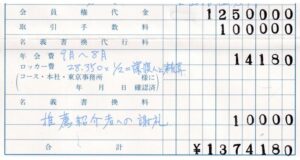 会員権代金 1250000
取引手数料 100000
名義書換代行料
年会費 9月~8月 14180
ロッカー費 28,350×1/2
コース・本社・東京事務所 様に
年 月 日 確認済
名義書換料 10000
推薦紹介者への謝礼
合計 ¥1374180